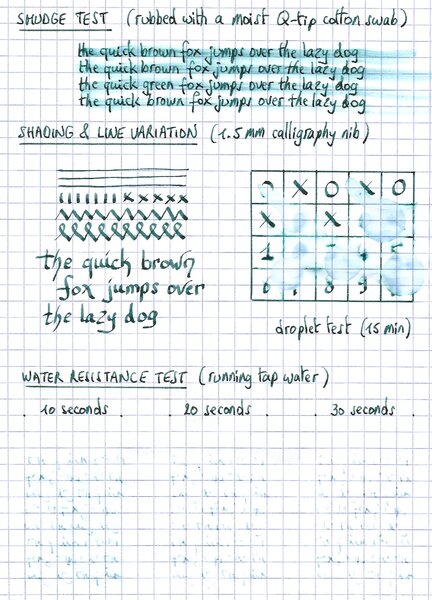 SMUDGE TEST (rubbed with a moist Q-tip cotton swab)
the quick brown fox jumps over the lazy dog
the quick brown fox jumps over the lazy dog
the quick green fox jumps over the lazy dog
the quick brown fox jumps over the lazy dog
SHADING & LINE VARIATION (1.5 mm calligraphy nib)
X O X O
X X
1 5
6 8 9
the quick brown
fox jumps over
the lazy dog
droplet test (15 min)
WATER RESISTANCE TEST (running tap water)
10 seconds 20 seconds 30 seconds